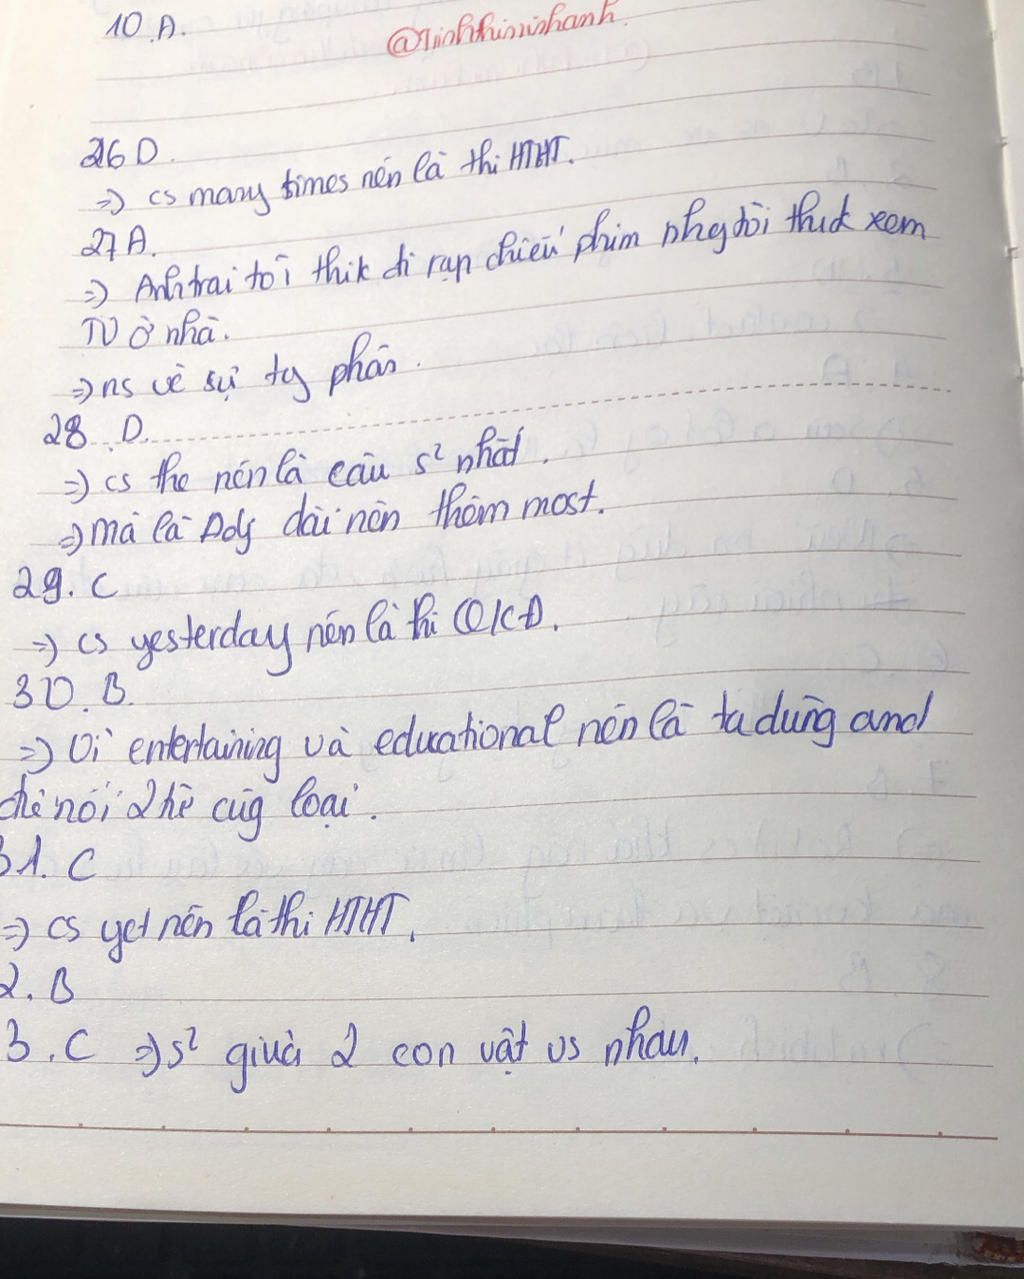 10.A.
26 D.
=> cs many times nên là thì HTHT.
27 A.
=> Anh trai tôi thik đi rạp chiếu phim nhg tôi thik xem
TV ở nhà.
=> ns về sự tg phản.
28. D.
=> cs the nên là câu s² nhất.
=> mà là Adj dài nên thêm most.
29. C
=> cs yesterday nên là thì QKĐ.
30. B.
=> Vì entertaining và educational nên là ta dùng and
để nối 2 từ cùg loại.
31. C
=> cs yet nên là thì HTHT.
2. B
3. C => s² giữa 2 con vật vs nhau.